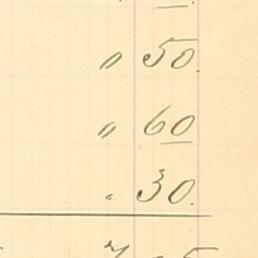 " 50.
" 60
" 30.